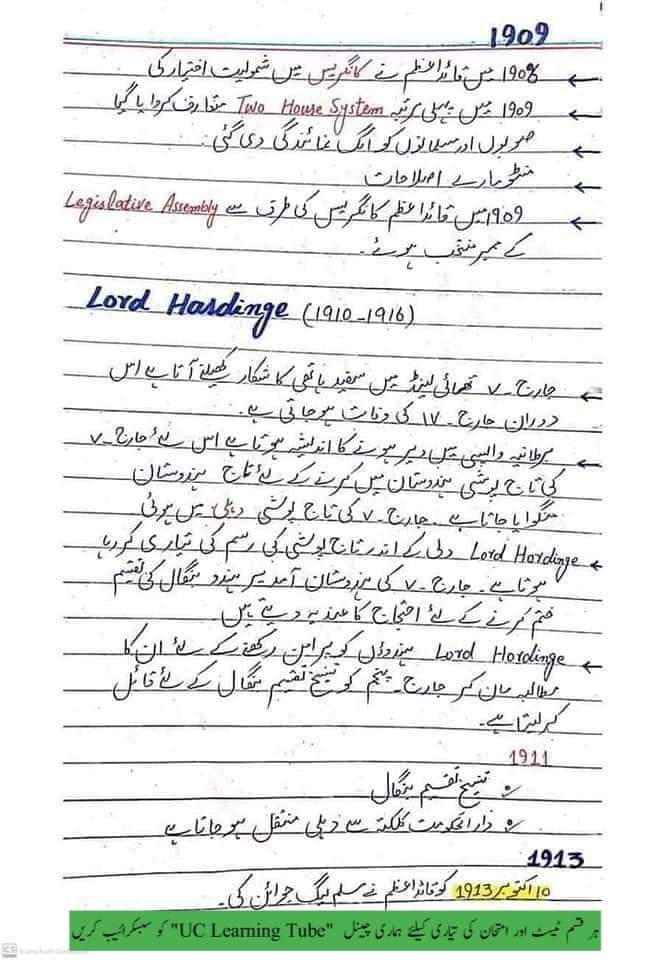 1909
← 1908 میں قائداعظم نے کانگریس میں شمولیت اختیار کی
← 1909 میں پہلی مرتبہ Two House System متعارف کروایا گیا
← صوبوں اور مسلمانوں کو الگ نمائندگی دی گئی۔
← منٹو مارلے اصلاحات
← 1909 میں قائداعظم کانگریس کی طرف سے Legislative Assembly
کے ممبر منتخب ہوئے۔
Lord Hardinge (1910-1916)
← جارج-V تھائی لینڈ میں سفید ہاتھی کا شکار کھیلنے آتا ہے اس
دوران جارج-IV کی وفات ہو جاتی ہے۔
← برطانیہ واپسی میں دیر ہونے کا اندیشہ ہوتا ہے اس لئے جارج-V
کی تاج پوشی ہندوستان میں کرنے کے لئے تاج ہندوستان
منگوایا جاتا ہے۔ جارج-V کی تاج پوشی دہلی میں ہوئی
← Lord Hardinge دلی کے اندر تاج پوشی کی رسم کی تیاری کر رہا
ہوتا ہے۔ جارج-V کی ہندوستان آمد پر ہندو بنگال کی تقسیم
ختم کرنے کے لئے احتجاج کا عندیہ دیتے ہیں
← Lord Hardinge ہندوؤں کو پرامن رکھنے کے لئے ان کا
مطالبہ مان کر جارج-پنجم کو تنسیخ تقسیم بنگال کے لئے قائل
کر لیتا ہے۔
1911
تنسیخ تقسیم بنگال
دارالحکومت کلکتہ سے دہلی منتقل ہو جاتا ہے
1913
10 اکتوبر 1913 کو قائداعظم نے مسلم لیگ جوائن کی۔
ہر قسم ٹیسٹ اور امتحان کی تیاری کیلئے ہماری چینل "UC Learning Tube" کو سبسکرائیب کریں
CS